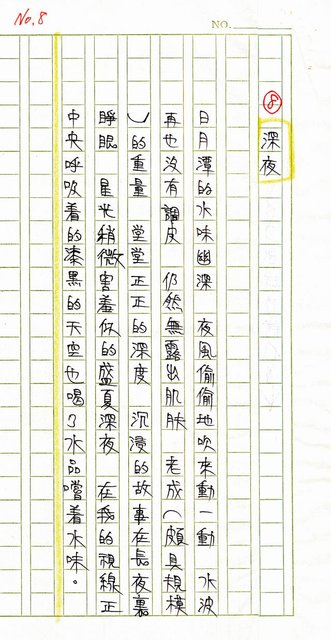 No.8
NO.
⑧
深夜
日月潭的水味幽深 夜風偷偷地吹來動一動 水波
再也沒有調皮 仍然無露出肌肤 老成(頗具規模
)的重量 堂堂正正的深度 沉浸的故事在長夜裏
睜眼 星光稍微害羞似的盛夏深夜 在我的視線正
中央呼吸着的漆黑的天空也喝了水品嚐着水味。